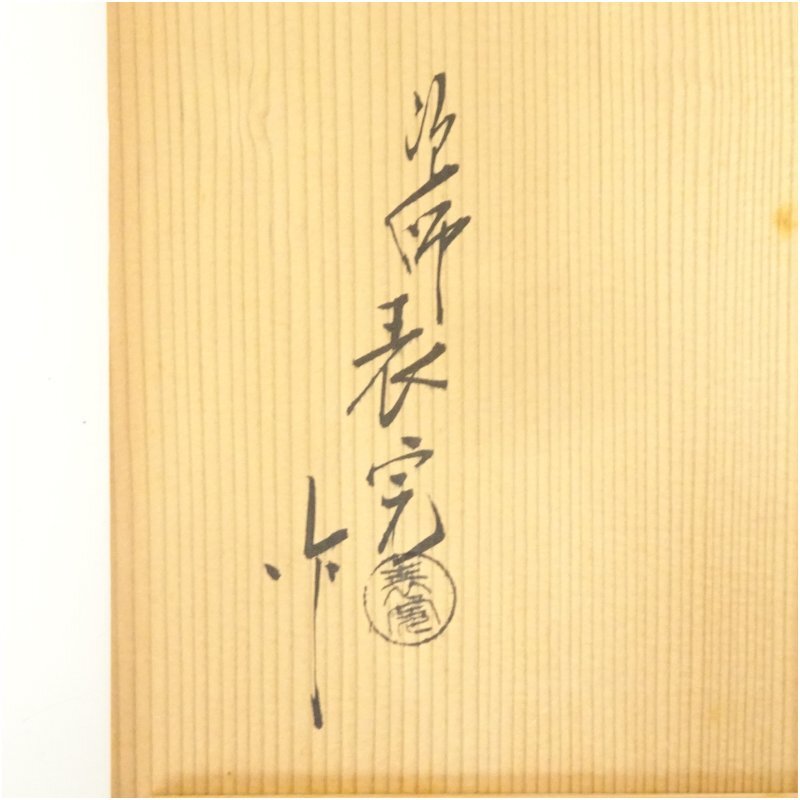 塗師表完
作
表完